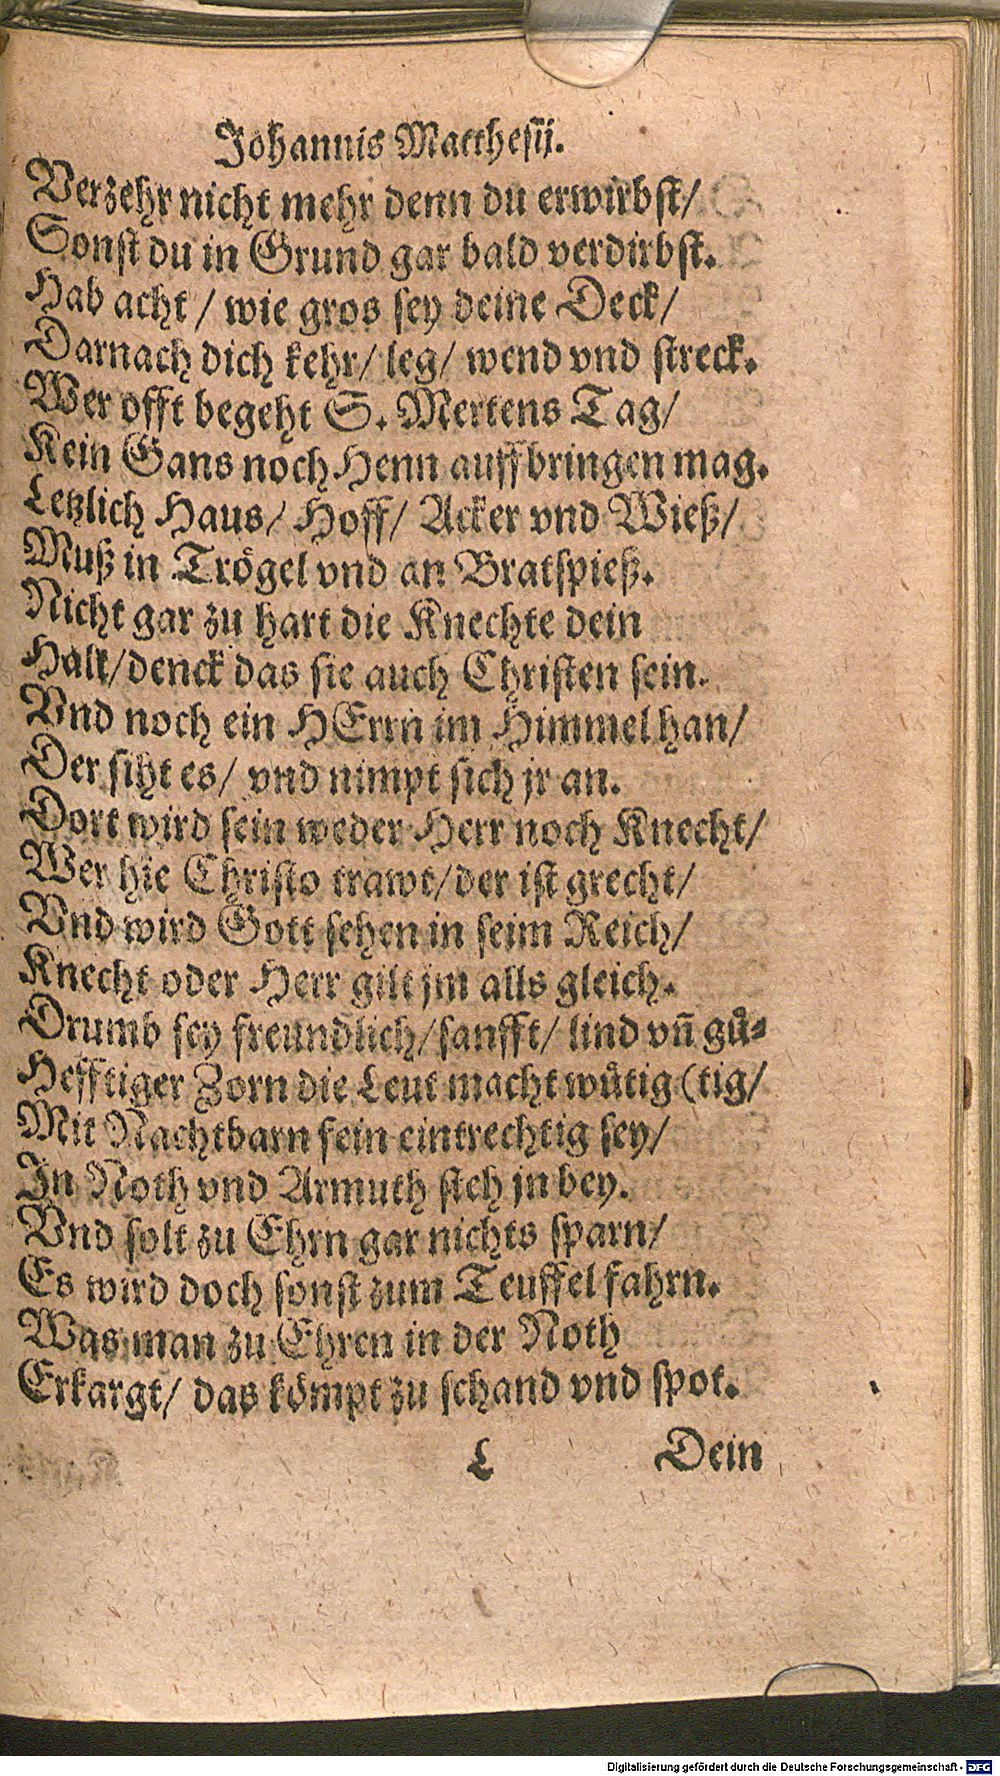 Johannis Matthesij.
Verzehr nicht mehr denn du erwirbst/
Sonst du in Grund gar bald verdirbst.
Hab acht / wie gros sey deine Deck/
Darnach dich kehr/ leg/ wend vnd streck.
Wer offt begeht S. Mertens Tag/
Kein Gans noch Henn auffbringen mag.
Letzlich Haus/ Hoff/ Acker vnd Wieß/
Muß in Trögel vnd an Bratspieß.
Nicht gar zu hart die Knechte dein
Halt/ denck das sie auch Christen sein.
Vnd noch ein HErrn im Himmel han/
Der siht es/ vnd nimpt sich jr an.
Dort wird sein weder Herr noch Knecht/
Wer hie Christo trawt/ der ist grecht/
Vnd wird Gott sehen in seim Reich/
Knecht oder Herr gilt jm alls gleich.
Drumb sey freundlich/ sanfft/ lind vn̄ guͤ⸗
Hefftiger Zorn die Leut macht wuͤtig (tig/
Mit Nachtbarn fein eintrechtig sey/
In Noth vnd Armuth steh jn bey.
Vnd solt zu Ehrn gar nichts sparn/
Es wird doch sonst zum Teuffel fahrn.
Was man zu Ehren in der Noth
Erkargt/ das kömpt zu schand vnd spot.
L Dein
Digitalisierung gefördert durch die Deutsche Forschungsgemeinschaft - DFG